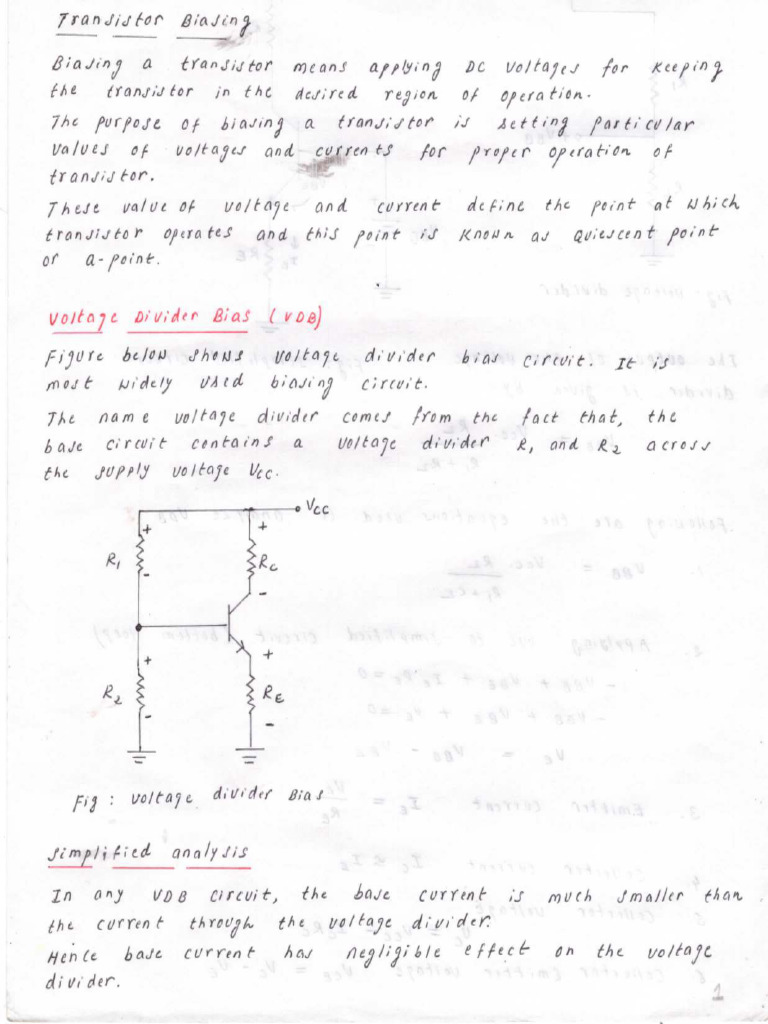 Transistor Biasing
Biasing a transistor means applying DC voltages for keeping
the transistor in the desired region of operation.
The purpose of biasing a transistor is setting particular
values of voltages and currents for proper operation of
transistor.
These value of voltage and current define the point at which
transistor operates and this point is known as Quiescent point
or Q-point.
Voltage Divider Bias (VDB)
Figure below shows voltage divider bias circuit. It is
most widely used biasing circuit.
The name voltage divider comes from the fact that, the
base circuit contains a voltage divider R1 and R2 across
the supply voltage Vcc.
VCC
+ +
R1 RC
- -
+ +
R2 RE
- -
Fig : voltage divider Bias
Simplified analysis
In any VDB circuit, the base current is much smaller than
the current through the voltage divider.
Hence base current has negligible effect on the voltage
divider.
1